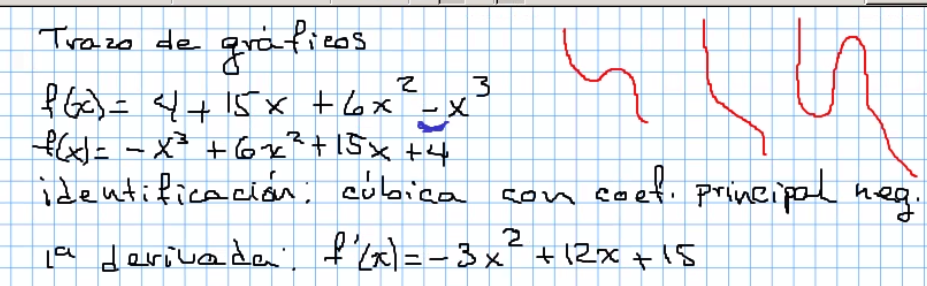 Trazo de gráficos
f(x) = 4 + 15x + 6x² - x³
f(x) = - x³ + 6x² + 15x + 4
identificación: cúbica con coef. principal neg.
1ª derivada: f'(x) = -3x² + 12x + 15